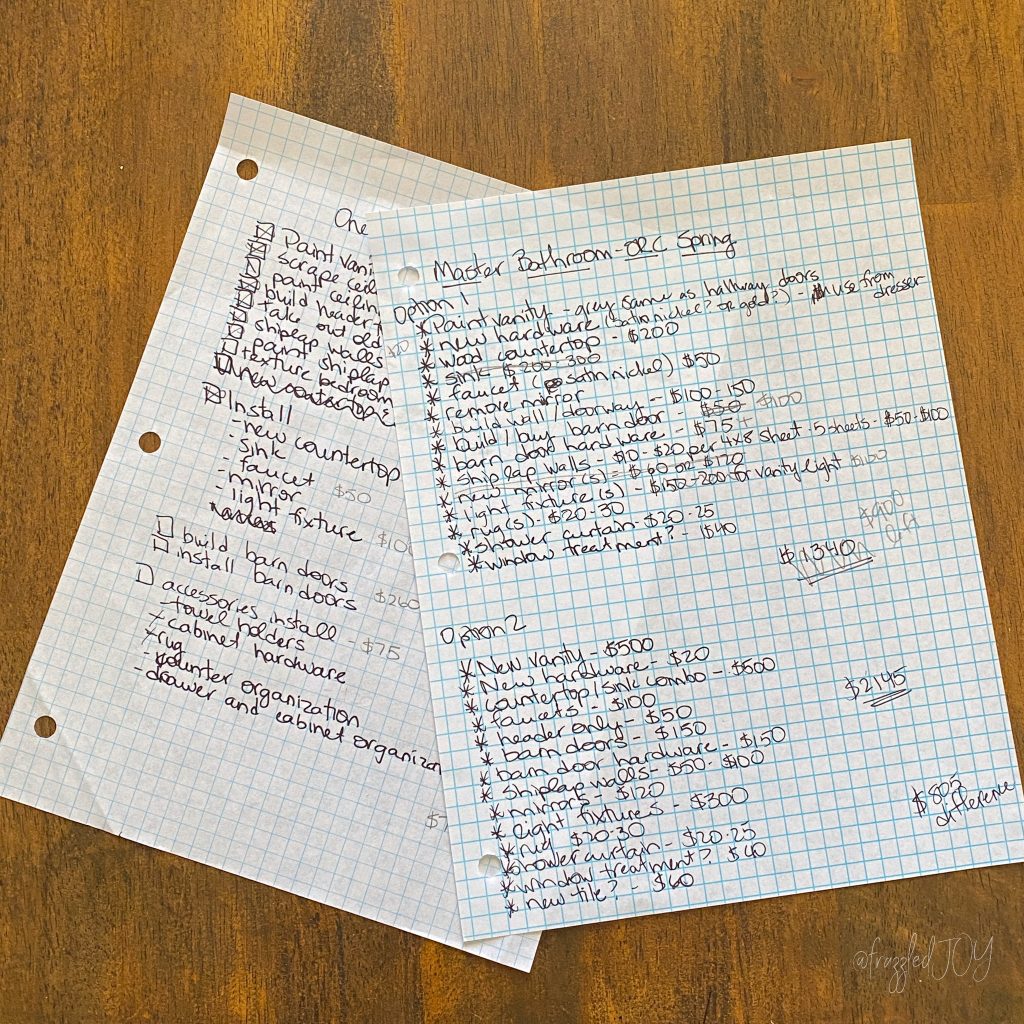 One
Paint vani
scrape ceil
paint ceilin
build header
take out old
shiplap walls
paint shiplap
texture bedroom
new countertop
Install
- new countertop
- sink
- faucet $50
- mirror
- light fixture $100
build barn doors
install barn doors $260
accessories install - $75
- towel holders
- cabinet hardware
- rug
- counter organization
- drawer and cabinet organizan
$7
Master Bathroom - ORC Spring
Option 1
* Paint vanity - grey same as hallway doors
$20 * new hardware (satin nickel? or gold?) - use from dresser
* wood countertop - $200
* sink $200-300
* faucet (satin nickel) $50
* remove mirror
* build wall/doorway - $100-150
* build/buy barn door - $50 $100
* barn door hardware - $75
* shiplap walls - $10-$20 per 4x8 sheet - 5 sheets - $50-$100
* new mirror(s) = $60 or $120
* light fixture(s) - $150-200 for vanity light $150
* rug(s) - $20-30
* shower curtain - $20-25
* window treatment? - $40
$900
$1340
Option 2
* New vanity - $500
* New hardware - $20
* countertop/sink combo - $500
* faucets - $100
* header only - $50
* barn doors - $150
* barn door hardware - $150
* Shiplap walls - $50-$100
* mirrors - $120
* light fixtures - $300
* rug $20-30
* shower curtain - $20-25
* window treatment? $40
* new tile? - $60
$2145
$805 difference
@frazzledJOY